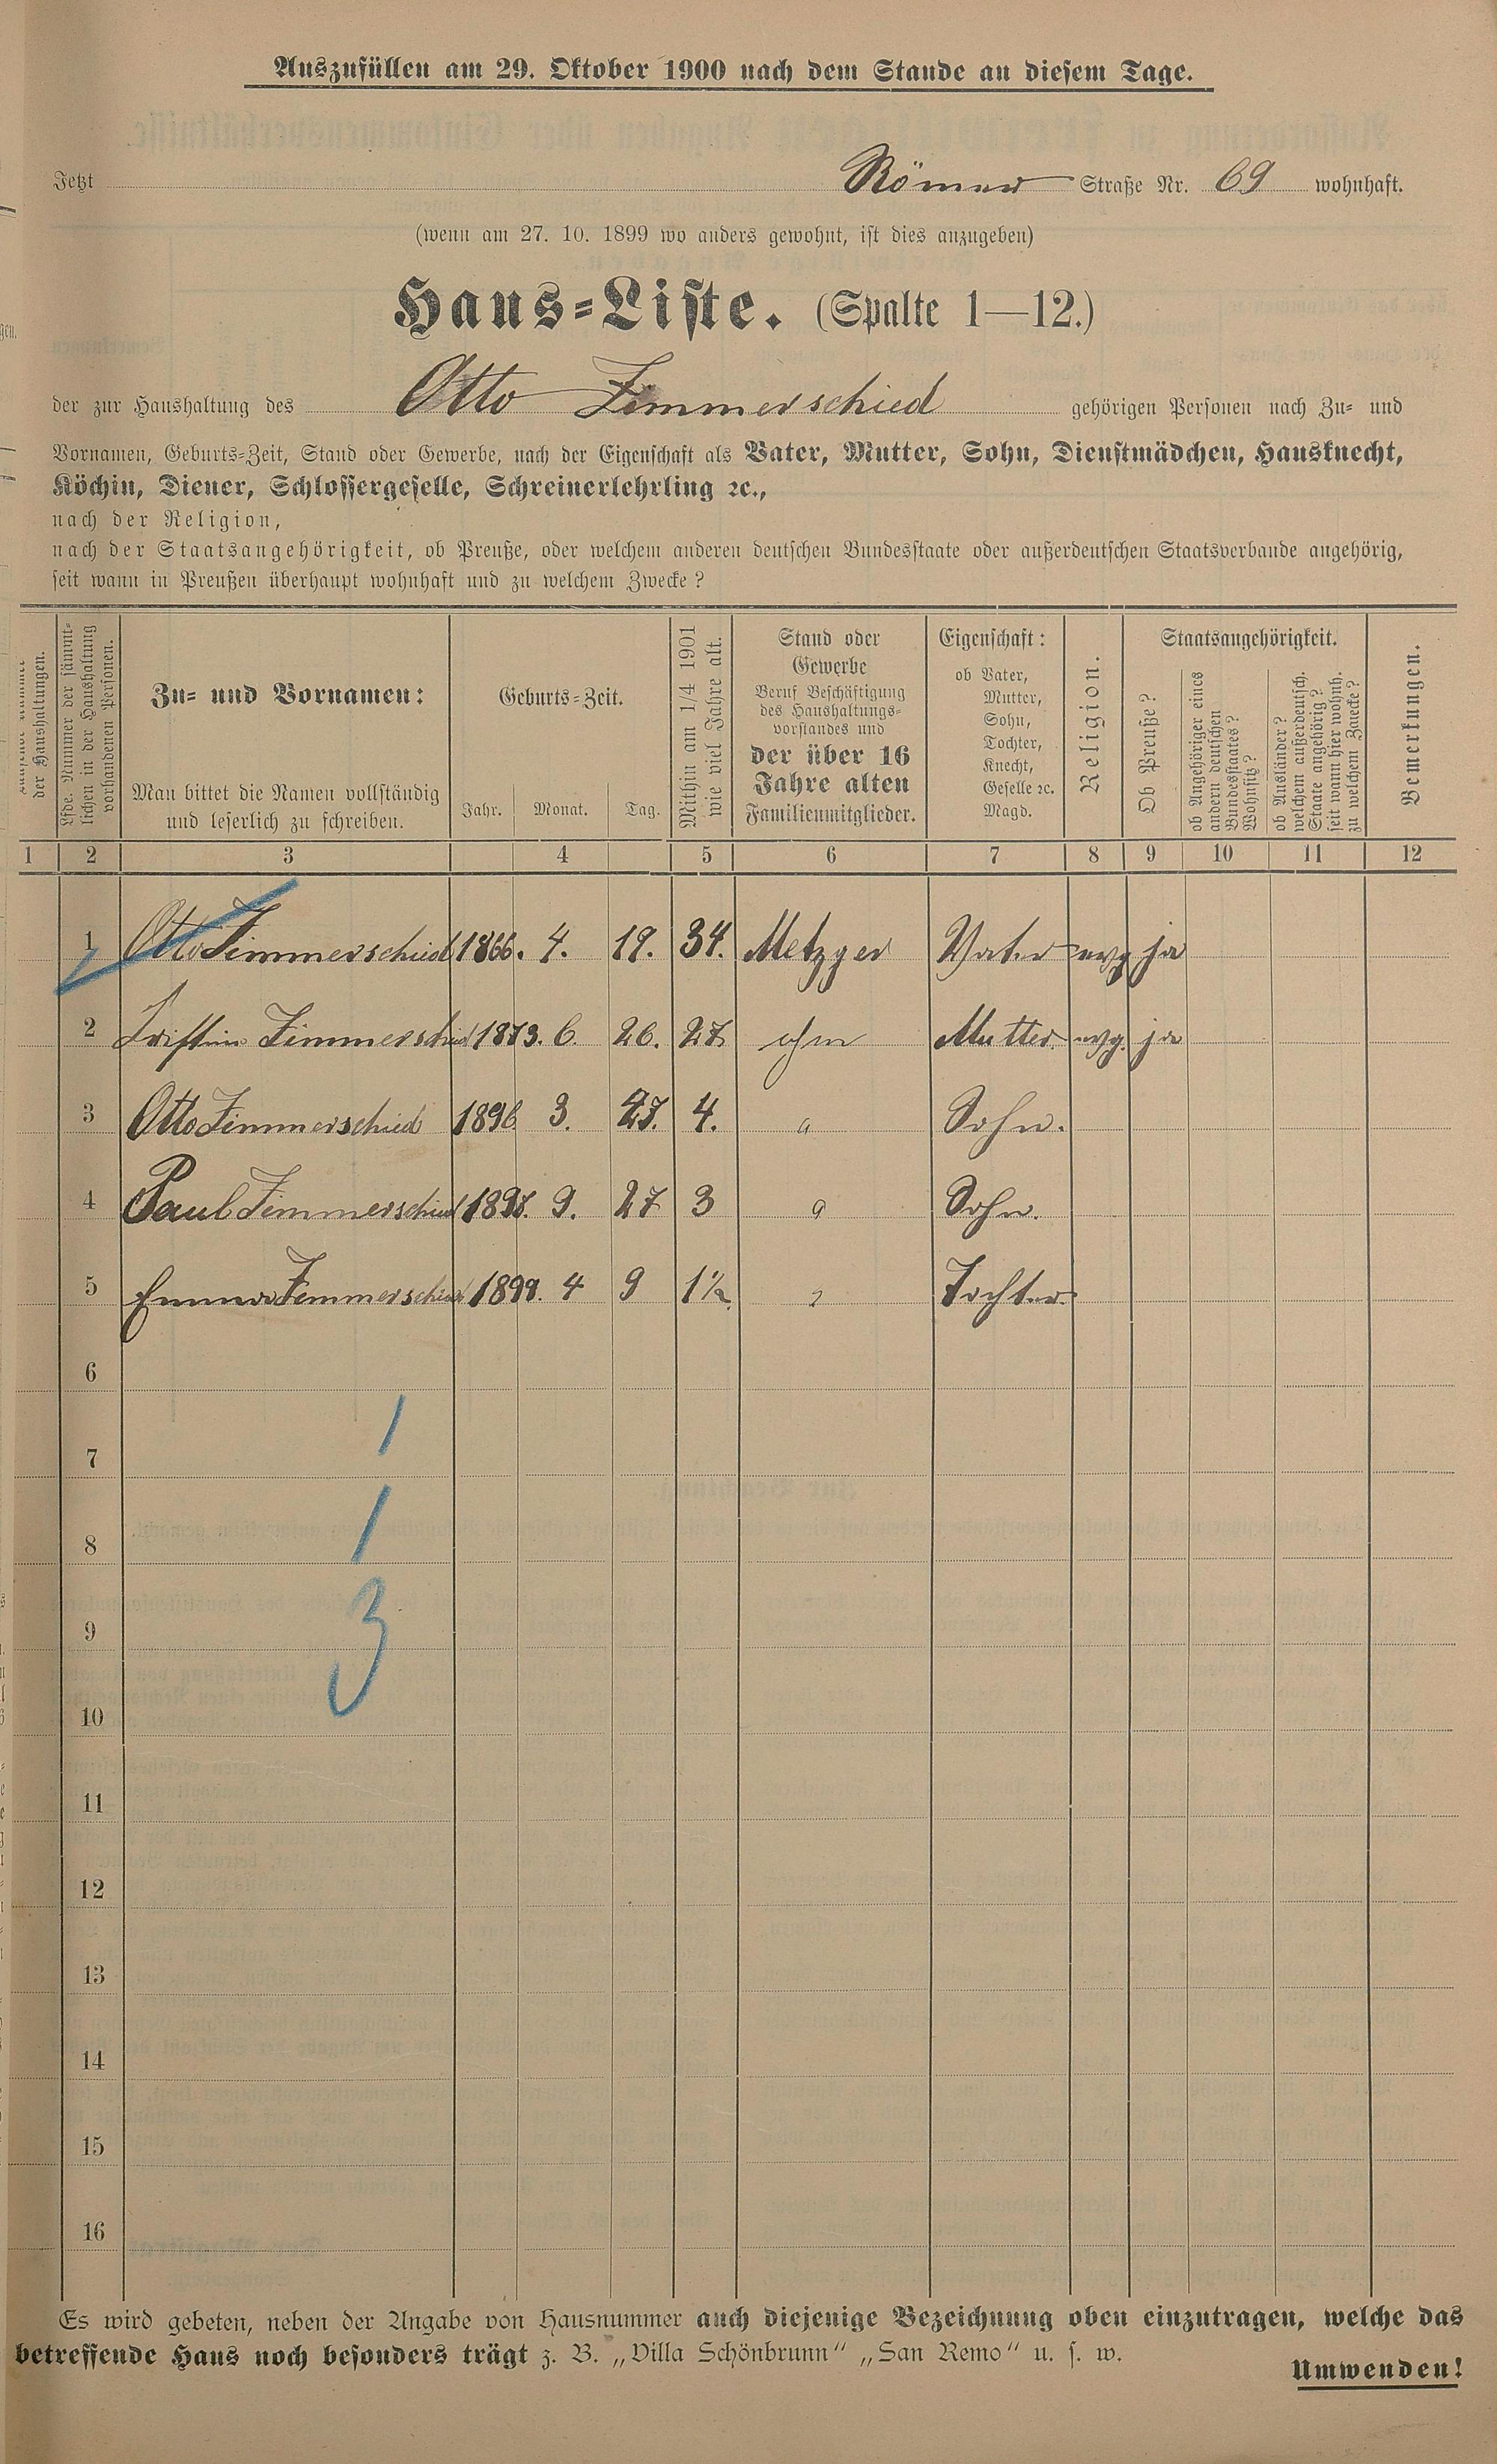 Auszufüllen am 29. Oktober 1900 nach dem Stande an diesem Tage.
Jetzt Römer Straße Nr. 69 wohnhaft.
(wenn am 27. 10. 1899 wo anders gewohnt, ist dies anzugeben)
Haus-Liste. (Spalte 1—12.)
der zur Haushaltung des Otto Zimmerschied gehörigen Personen nach Zu- und
Vornamen, Geburts-Zeit, Stand oder Gewerbe, nach der Eigenschaft als Vater, Mutter, Sohn, Dienstmädchen, Hausknecht,
Köchin, Diener, Schlossergeselle, Schreinerlehrling ꝛc.,
nach der Religion,
nach der Staatsangehörigkeit, ob Preuße, oder welchem anderen deutschen Bundesstaate oder außerdeutschen Staatsverbande angehörig,
seit wann in Preußen überhaupt wohnhaft und zu welchem Zwecke?
der Haushaltungen.
Lfde. Nummer der sämmt-
lichen in der Haushaltung
vorhandenen Personen.
Zu- und Vornamen:
Man bittet die Namen vollständig
und leserlich zu schreiben.
Geburts-Zeit.
Jahr. Monat. Tag.
Mithin am 1/4 1901
wie viel Jahre alt.
Stand oder
Gewerbe
Beruf Beschäftigung
des Haushaltungs-
vorstandes und
der über 16
Jahre alten
Familienmitglieder.
Eigenschaft:
ob Vater,
Mutter,
Sohn,
Tochter,
Knecht,
Geselle ꝛc.
Magd.
Religion.
Staatsangehörigkeit.
Ob Preuße?
ob Angehöriger eines
andern deutschen
Bundesstaates?
Wohnsitz?
ob Ausländer?
welchem außerdeutsch.
Staate angehörig?
seit wann hier wohnh.
zu welchem Zwecke?
Bemerkungen.
1 2 3 4 5 6 7 8 9 10 11 12
1 Otto Zimmerschied 1866. 4. 19. 34. Metzger Vater evg ja
2 Zimmerschied 1873. 6. 26. 27 Mutter evg. ja
3 Otto Zimmerschied 1896 3. 27. 4. Sohn.
4 Paul Zimmerschied 1897. 9. 27 3 Sohn.
5 Emma Zimmerschied 1899. 4 9 1½ Tochter
6
7 1
8 1
9 3
10
11
12
13
14
15
16
Es wird gebeten, neben der Angabe von Hausnummer auch diejenige Bezeichnung oben einzutragen, welche das
betreffende Haus noch besonders trägt z. B. „Villa Schönbrunn“ „San Remo“ u. s. w.
Umwenden!